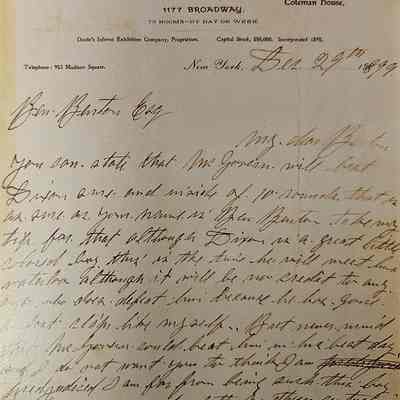 Coleman House,
1177 BROADWAY.
75 ROOMS—BY DAY OR WEEK.
Doole's Inferno Exhibition Company, Proprietors. Capital Stock, $50,000. Incorporated 1898.
Telephone: 953 Madison Square. New York, Dec 29th 1899
Ben. Benton Esq
My dear Benton
You can state that McGovern will beat
Dixon sure and inside of 10 rounds that is
as sure as your name is Ben Benton take my
tip for that although Dixon is a great little
colored boy this is the time he will meet his
waterloo although it will be no credit to any
one who does defeat him because he has gone
back like myself.. But never mind
McGovern could beat him in his best day
I do not want you to think I am
prejudiced I am far from being such this boy